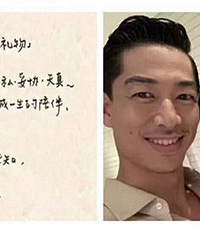 礼物,
私·妥协·天真~
成一生的陪伴.
知,